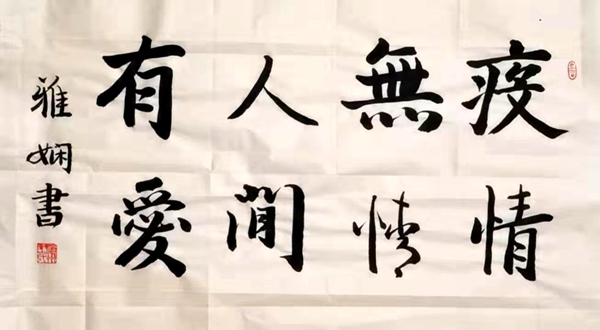 疫情
無情
人間
有愛
雅娴書